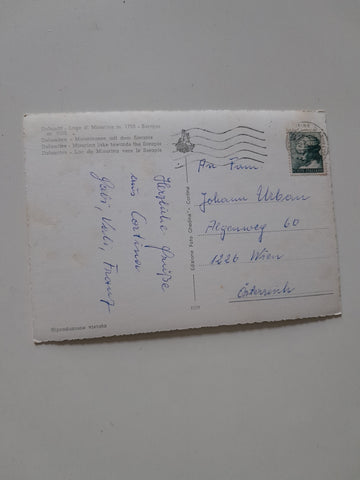 Dolomiti - Lago di Misurina m. 1755 - Sorapis
Dolomiten - Misurinasee mit dem Sorapis
Dolomites - Misurina lake towards the Sorapis
Dolomites - Lac de Misurina vers le Sorapis
Herzliche Grüße
aus Cortina
Gabi, Franz
Riproduzione vietata
Edizione Foto Ghedina - Cortina
An Fam
Johann Urban
Algenweg 60
1226 Wien
Österreich